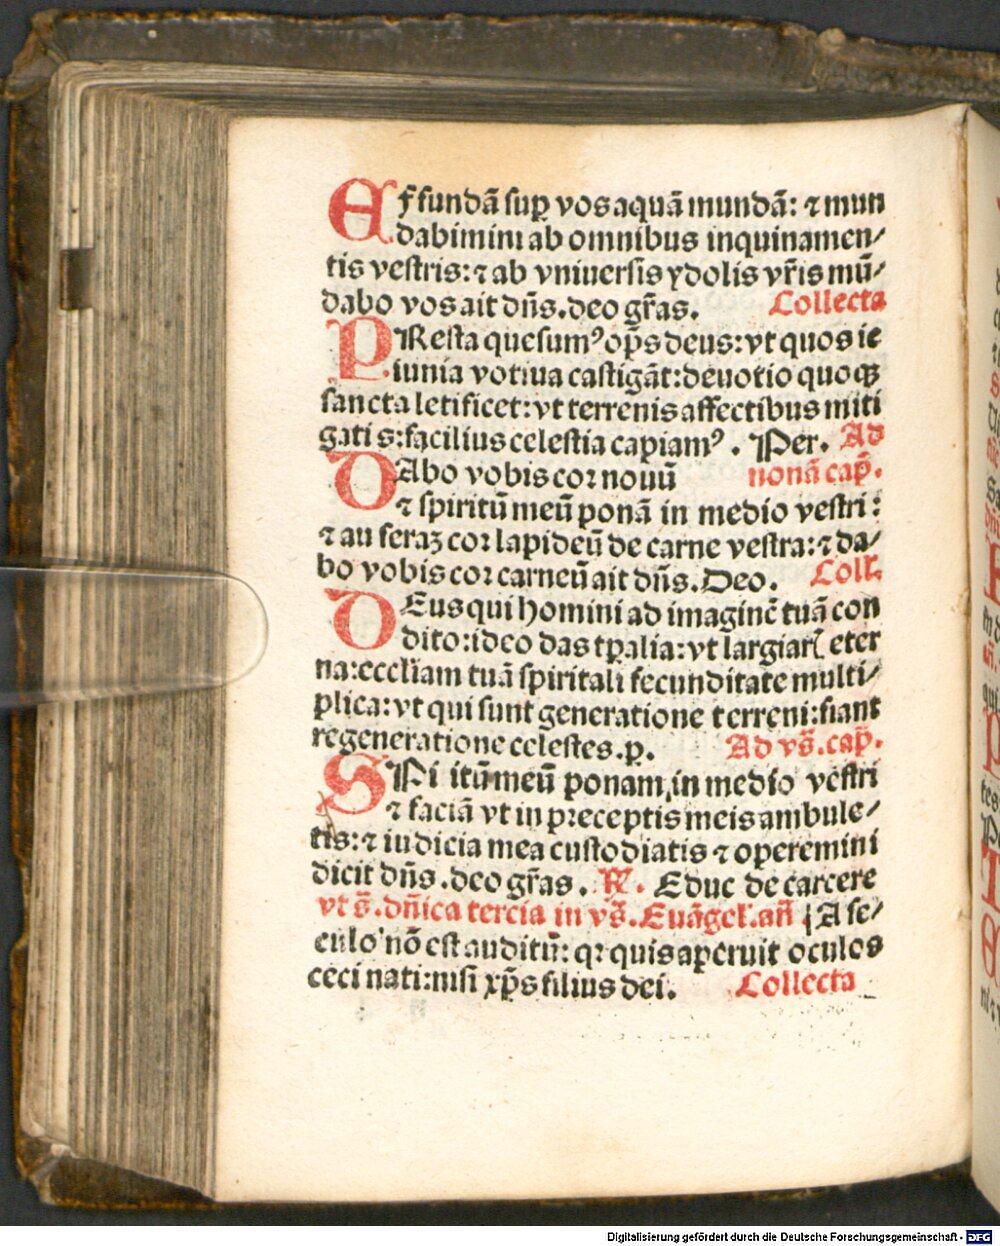 Effundā sup̱ vos aquā mundā: ⁊ mun
dabimini ab omnibus inquinamen⸗
tis vestris: ⁊ ab vniuersis ydolis vr̄is mū⸗
dabo vos ait dn̄s. deo gr̄as. Collecta
PResta quesumꝰ op̄s deus: vt quos ie
iunia votiua castigāt: deuotio quoqꝫ
sancta letificet: vt terrenis affectibus miti
gati s: facilius celestia capiamꝰ. Per. Ad
DAbo vobis cor nouū nonā cap̄.
⁊ spiritū meū ponā in medio vestri:
⁊ au feraꝫ cor lapideū de carne vestra: ⁊ da⸗
bo vobis cor carneū ait dn̄s. Deo. Coll.
DEus qui homini ad imaginē tuā con
dito: ideo das tp̄alia: vt largiarꝭ eter
na: eccliam tuā spiritali fecunditate multi⸗
plica: vt qui sunt generatione terreni: fiant
regeneratione celestes. p. Ad vs̄. cap̄.
SPi itū meū ponam in medio vestri
⁊ faciā vt in preceptis meis ambule⸗
tis: ⁊ iudicia mea custodiatis ⁊ operemini
dicit dn̄s. deo gr̄as. R. Educ de carcere
vt s̄. dn̄ica tercia in vs̄. Euāgel. an̄ A se⸗
culo nō est auditū: qꝛ quis aperuit oculos
ceci nati: nisi xp̄s filius dei. Collecta
Digitalisierung gefördert durch die Deutsche Forschungsgemeinschaft - DFG